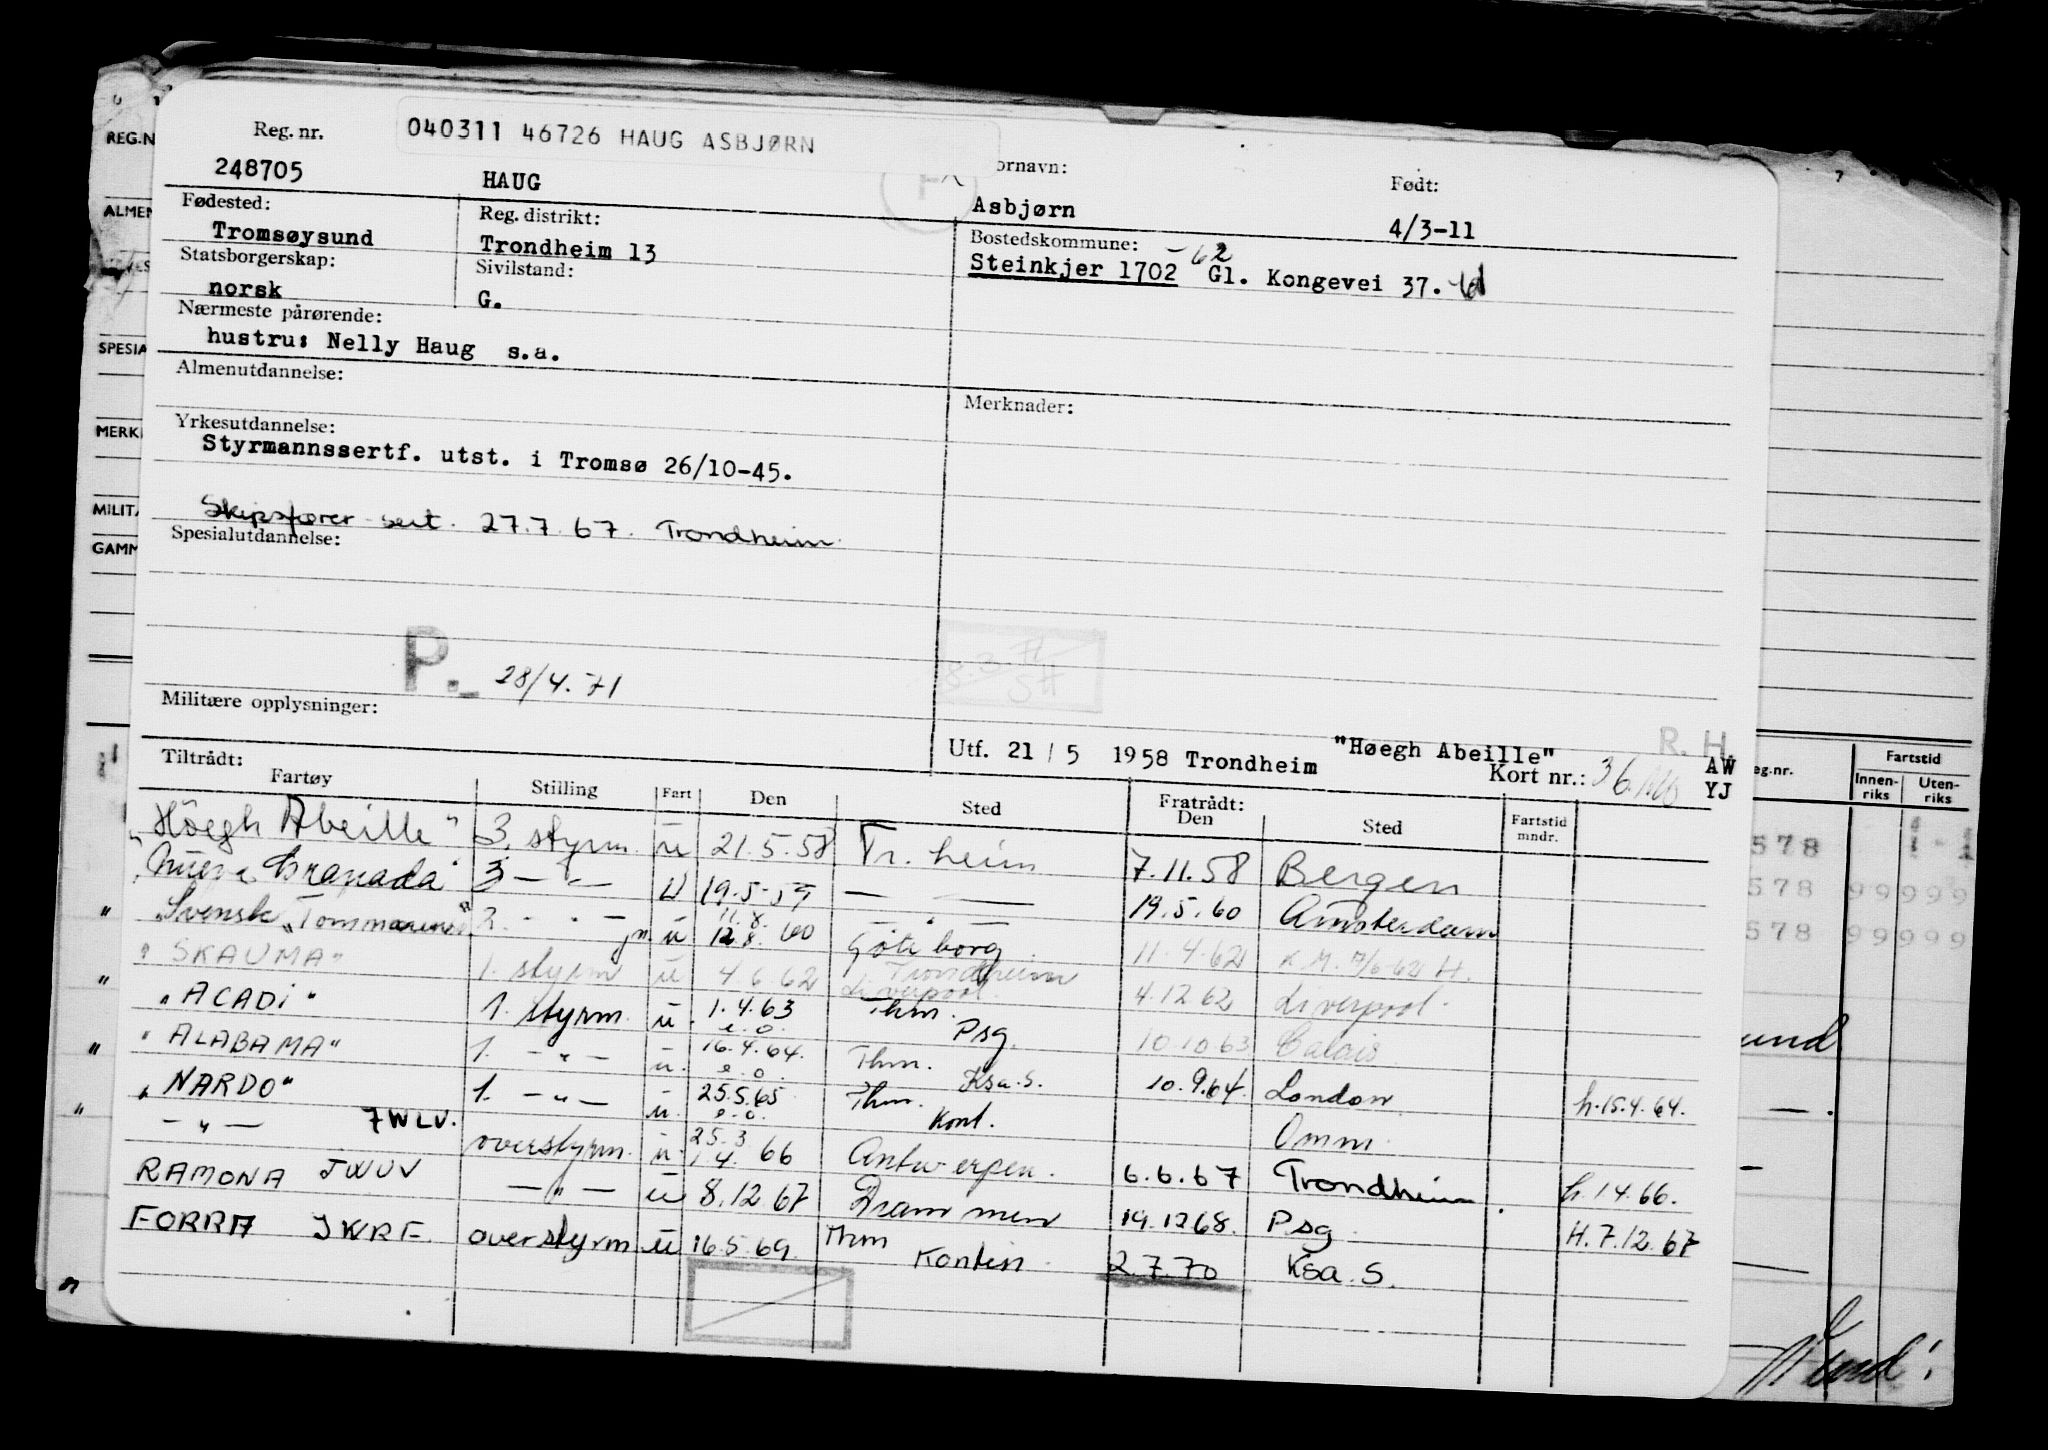 040311 46726 HAUG ASBJØRN
Reg. nr. ornavn: Født:
248705 HAUG Asbjørn 4/3-11
Fødested: Reg. distrikt: Bostedskommune:
Tromsøysund Trondheim 13 Steinkjer 1702 -62 Gl. Kongevei 37.
Statsborgerskap: Sivilstand:
norsk G.
Nærmeste pårørende:
hustru: Nelly Haug s.a.
Almenutdannelse: Merknader:
Yrkesutdannelse:
Styrmannssertf. utst. i Tromsø 26/10-45.
Skipsfører sert. 27.7.67. Trondheim.
Spesialutdannelse:
P. 28/4.71
8.3.71
SH
Militære opplysninger:
Utf. 21 / 5 1958 Trondheim "Høegh Abeille" R. H.
Kort nr.: 36 AW
YJ
Tiltrådt: Fratrådt:
Fartøy Stilling Fart Den Sted Den Sted Fartstid mndr.
"Höegh Abeille" 3. styrm. u 21.5.58 Tr. heim 7.11.58 Bergen
"Nueva Granada" 3 - " - u 19.5.59 — " — 19.5.60 Amsterdam
Svensk "Tommarine" 2. - " - u 11.8. 12.8. 60 Göteborg 11.4.62
"SKAUMA" 1. styrm u 4.6.62 Trondheim Liverpool. 4.12.62 Liverpool.
"ACADI" 1. styrm. u. 1.4.63 e.o. Thm. Psg. 10.10.63 Calais
"ALABAMA" 1. - " - u. 16.4.64. e.o. Thm. Ksa.S. 10.9.64. London h.15.4.64.
"NARDO" 1. - " - u. 25.5.65 e.o. Thm. Kont. Omm.
- " - 7WLV. overstyrm. u. 25.3 1.4. 66 Antwerpen. 6.6.67 Trondheim. h.1.4.66.
RAMONA JWUV - " - u 8.12.67 Drammen 19.12.68. Psg. H.7.12.67
FORRA JWRF. overstyrm u 16.5.69. Thm Kontin. 2.7.70 Ksa.S.
REG.N
ALMEN
SPESIA
MERK
MILITÆ
GAMM
eg.nr. Fartstid
Innen-riks Uten-riks
578
578 99999
578 99999
und